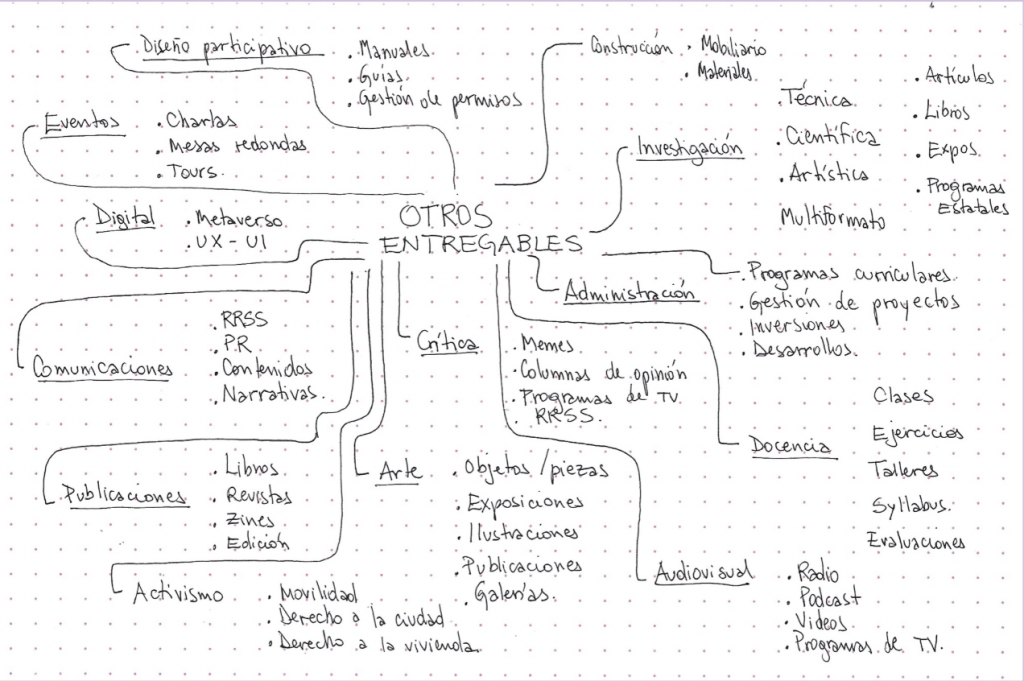 Diseño participativo
. Manuales.
. Guías.
. Gestión de permisos
Construcción . Mobiliario
. Materiales
Eventos
. Charlas
. Mesas redondas.
. Tours.
Investigación
. Técnica
. Científica
. Artística
Multiformato
. Artículos
. Libros
. Expos.
. Programas
Estatales
Digital
. Metaverso
. UX - UI
OTROS
ENTREGABLES
Administración
. Programas curriculares.
. Gestión de proyectos
. Inversiones
. Desarrollos.
Comunicaciones
. RRSS
. PR
. Contenidos
. Narrativas.
Crítica
. Memes
. Columnas de opinión
. Programas de TV.
. RRSS.
Docencia
Clases
Ejercicios
Talleres
Syllabus.
Evaluaciones
Publicaciones
. Libros
. Revistas
. Zines
. Edición
Arte
. Objetos / piezas
. Exposiciones
. Ilustraciones
. Publicaciones
. Galerías.
Activismo
. Movilidad
. Derecho a la ciudad
. Derecho a la vivienda.
Audiovisual
. Radio
. Podcast
. Videos
. Programas de TV.